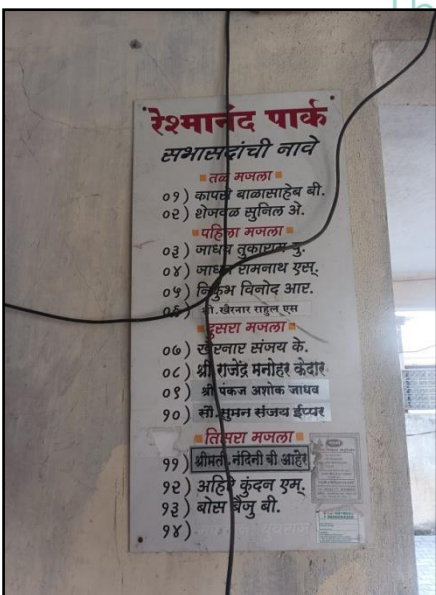 रेश्मानंद पार्क
सभासदांची नावे
तळ मजला
०१) कापसे बाळासाहेब बी.
०२) शेजवळ सुनिल अे.
पहिला मजला
०३) जाधव तुकाराम दु.
०४) जाधव रामनाथ एस्.
०५) निकुंभ विनोद आर.
०६) श्री. खैरनार राहुल एस
दुसरा मजला
०७) खैरनार संजय के.
०८) श्री राजेंद्र मनोहर केदार
०९) श्री पंकज अशोक जाधव
१०) सौ. सुमन संजय ईप्पर
तिसरा मजला
११) श्रीमती. नंदिनी बी आहेर
१२) अहिरे कुंदन एम्.
१३) बोस बैजु बी.
१४)